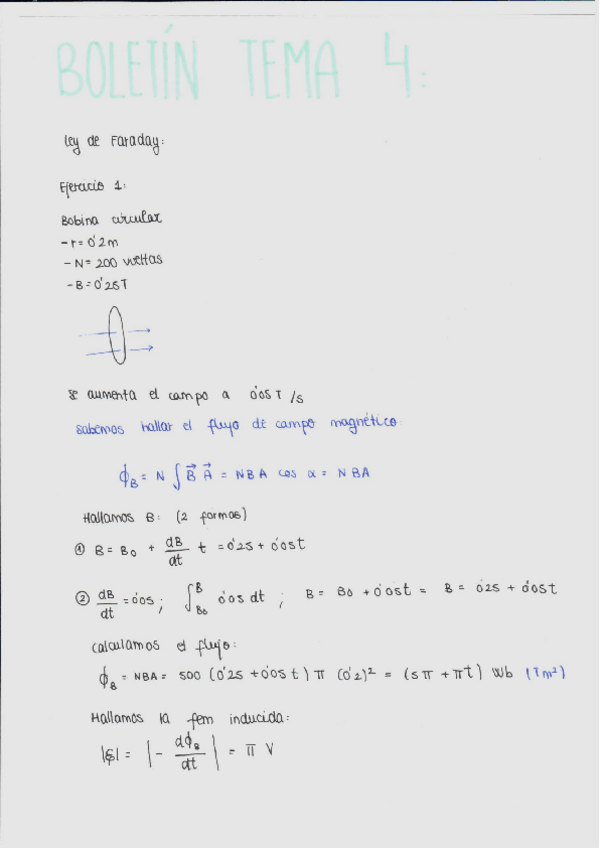 BOLETÍN TEMA 4:
Ley de Faraday:
Ejercicio 1:
Bobina circular
- r = 0'2m
- N = 200 vueltas
- B = 0'25T
Se aumenta el campo a 0'05 T/s
Sabemos hallar el flujo de campo magnético:
ϕ_B = N ∫ B⃗ A⃗ = NBA cos α = NBA
Hallamos B: (2 formas)
① B = B₀ + dB/dt t = 0'25 + 0'05t
② dB/dt = 0'05 ; ∫_{B₀}^{B} 0'05 dt ; B = B₀ + 0'05t = B = 0'25 + 0'05t
Calculamos el flujo:
ϕ_B = NBA = 500 (0'25 + 0'05 t) π (0'2)² = (5π + πt) Wb (Tm²)
Hallamos la fem inducida:
|ε| = |- dϕ_B/dt| = π V